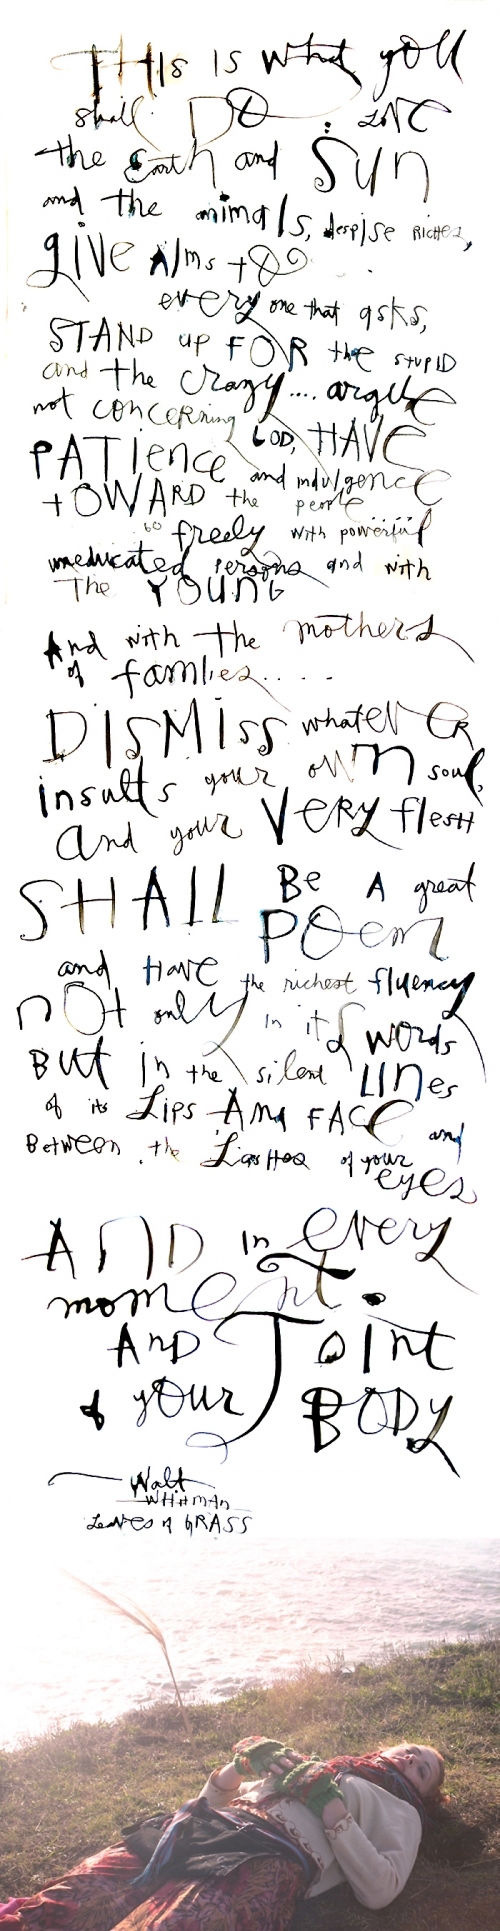 THIS IS what you
shall DO: LOVE
the Earth and SUN
and the animals, despise RICHES,
GIVE Alms to
every one that asks,
STAND up FOR the STUPID
and the crazy.... argue
not concerning GOD, HAVE
PATIENCE and indulgence
TOWARD the people......
go freely with powerful
uneducated persons and with
The YOUNG
And with the mothers
of famlies.....
DISMISS whatevER
insults your own soul,
and your VERY flesh
SHALL Be A great
POem
and HAVE the richest fluency
not only in its words
But in the silent LINes
of its Lips And FACE and
Between the Lashes of your
eyes
AND in every
moment.
AND Joint
of your BODY
Walt
WHITMAN
Leaves of GRASS